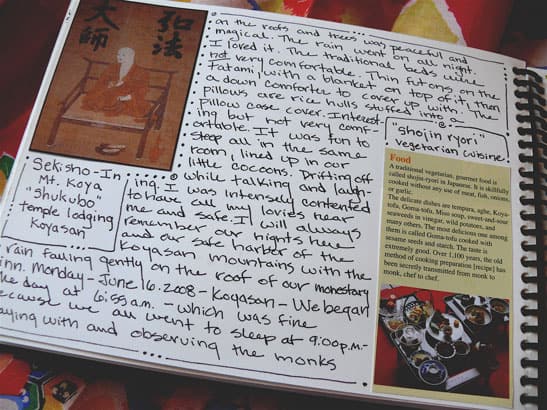 弘法
大師
on the roofs and trees was peaceful and
magical. The rain went on all night.
I loved it. The traditional beds were
not very comfortable. Thin futons on the
tatami, with a blanket on top of it, then
a down comforter to cover up with. The
pillows are rice hulls stuffed into a
pillow case cover. Interest-
ing but not very comf-
ortable. It was fun to
sleep all in the same
room lined up in our
little cocoons. Drifting off
while talking and laugh-
ing. I was intensely contented
to have all my lovies near
me and safe. I will always
remember our nights here
in the safe harbor of the
Koyasan mountains with the
rain falling gently on the roof of our monastary
inn. Monday - June 16, 2008 - Koyasan - We began
the day at 6:55 a.m. - which was fine
because we all went to sleep at 9:00 p.m. -
aying with and observing the monks
Sekisho-In
Mt. Koya
"shukubo"
temple lodging
Koyasan
"shojin ryori"
vegetarian cuisine
Food
A traditional vegetarian, gourmet food is
called shojin-ryori in Japanese. It is skilfully
cooked without any use of meat, fish, onions,
or garlic.
The delicate dishes are tempura, aghe, Koya-
tofu, Goma-tofu, Miso soup, sweet-and-sour
seaweeds in vinegar, wild potatoes, and
many others. The most delicious one among
them is called Goma-tofu cooked with
sesame seeds and starch. The taste is
extremely good. Over 1,100 years, the old
method of cooking preparation [recipe] has
been secretly transmitted from monk to
monk, chef to chef.